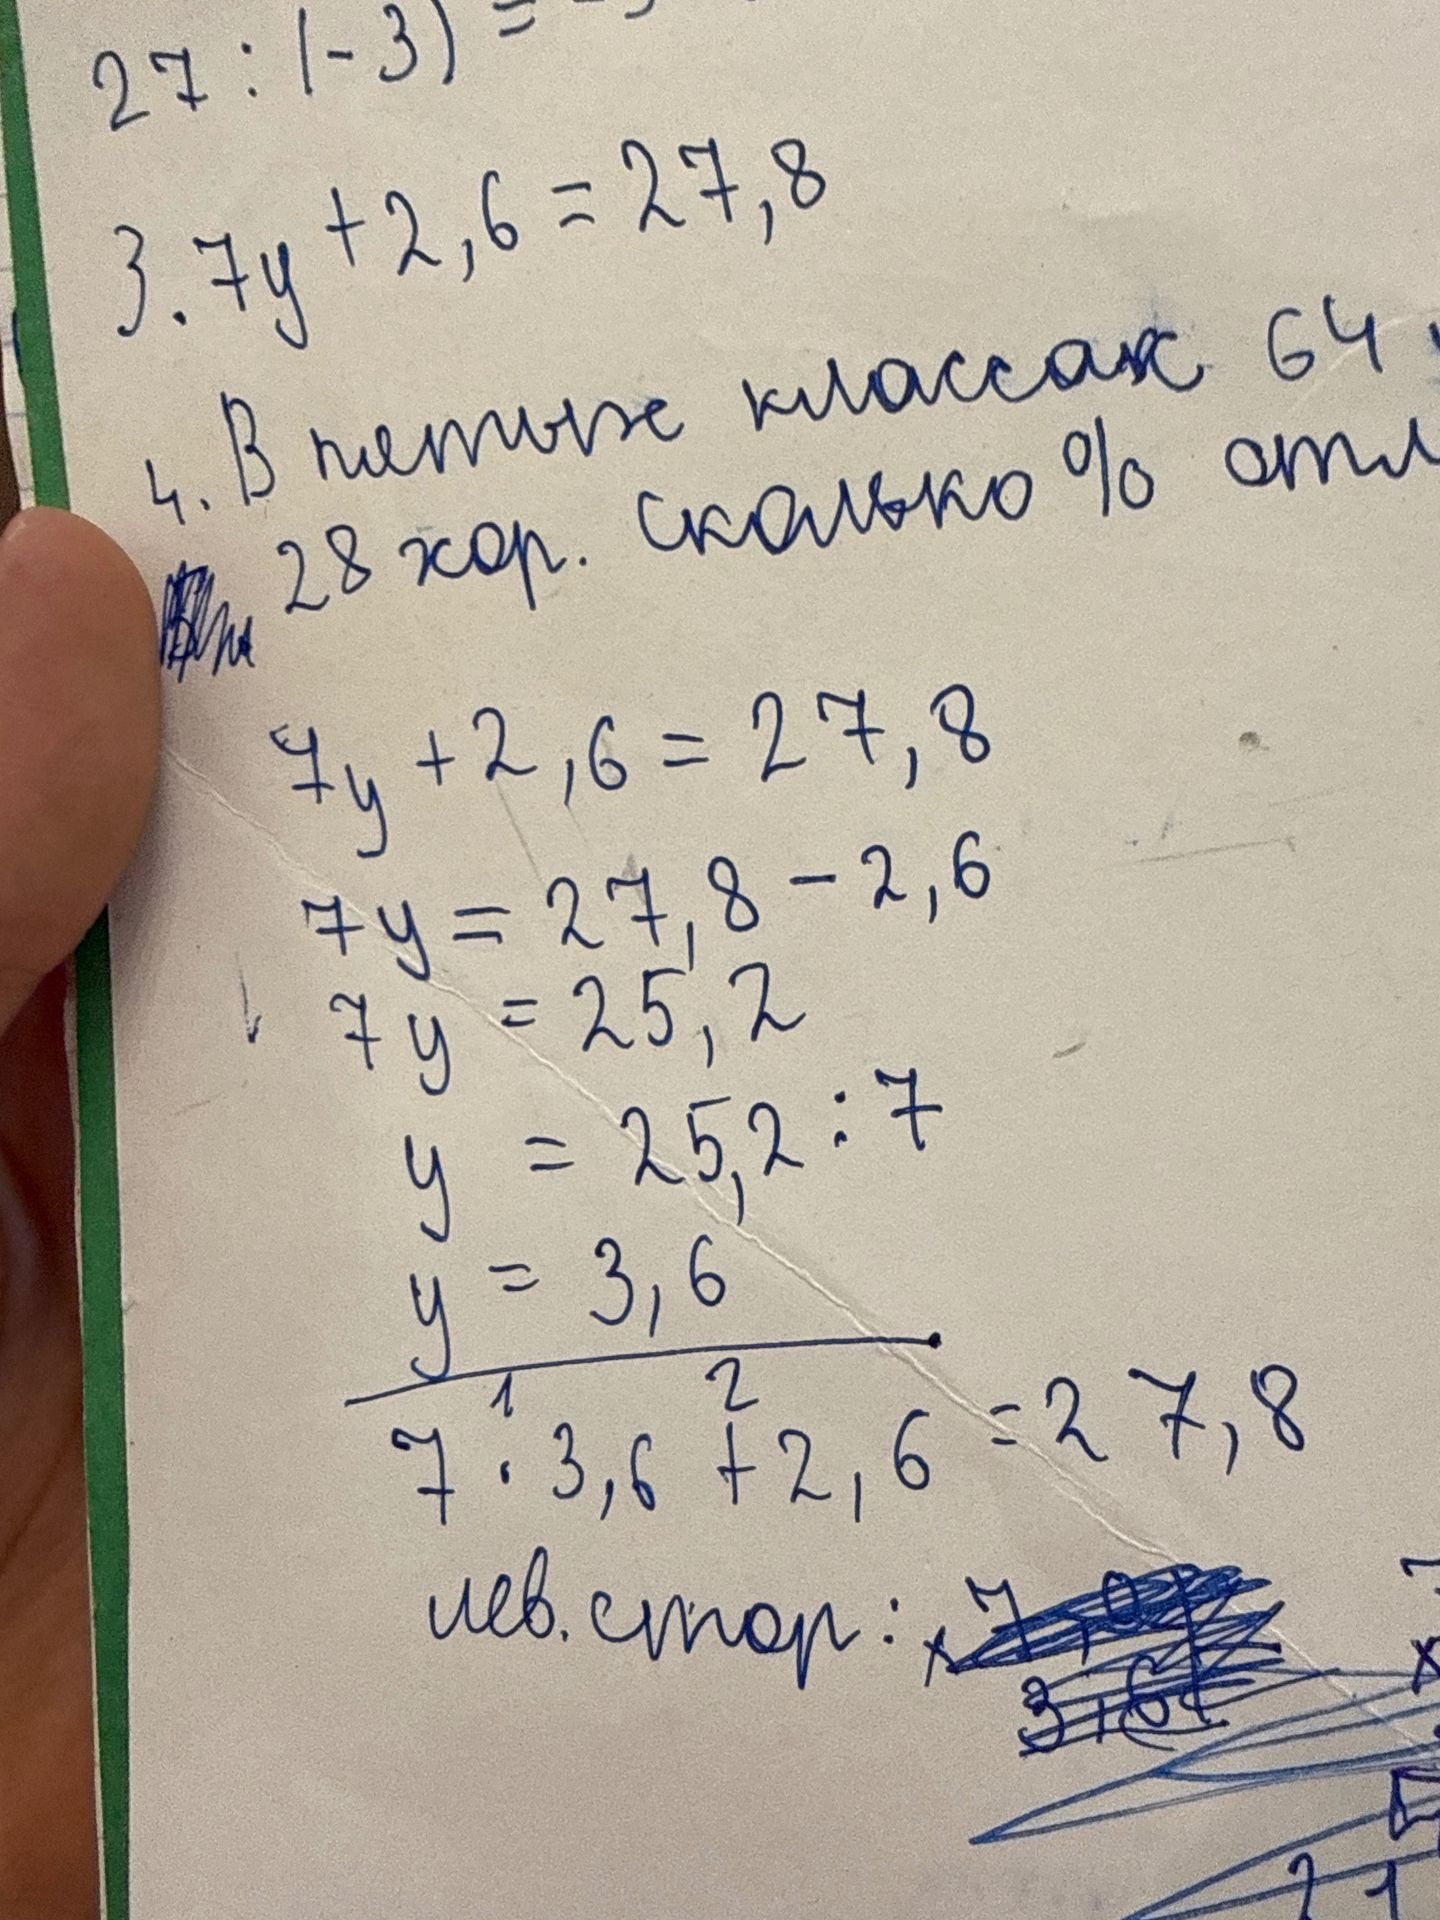 27 : (-3) =
3. 7y + 2,6 = 27,8
4. В пятых классах 64
28 хор. Сколько % отл
7y + 2,6 = 27,8
7y = 27,8 - 2,6
7y = 25,2
y = 25,2 : 7
y = 3,6
1 2
7 · 3,6 + 2,6 = 27,8
лев. стор: x 7,0
3,6
21